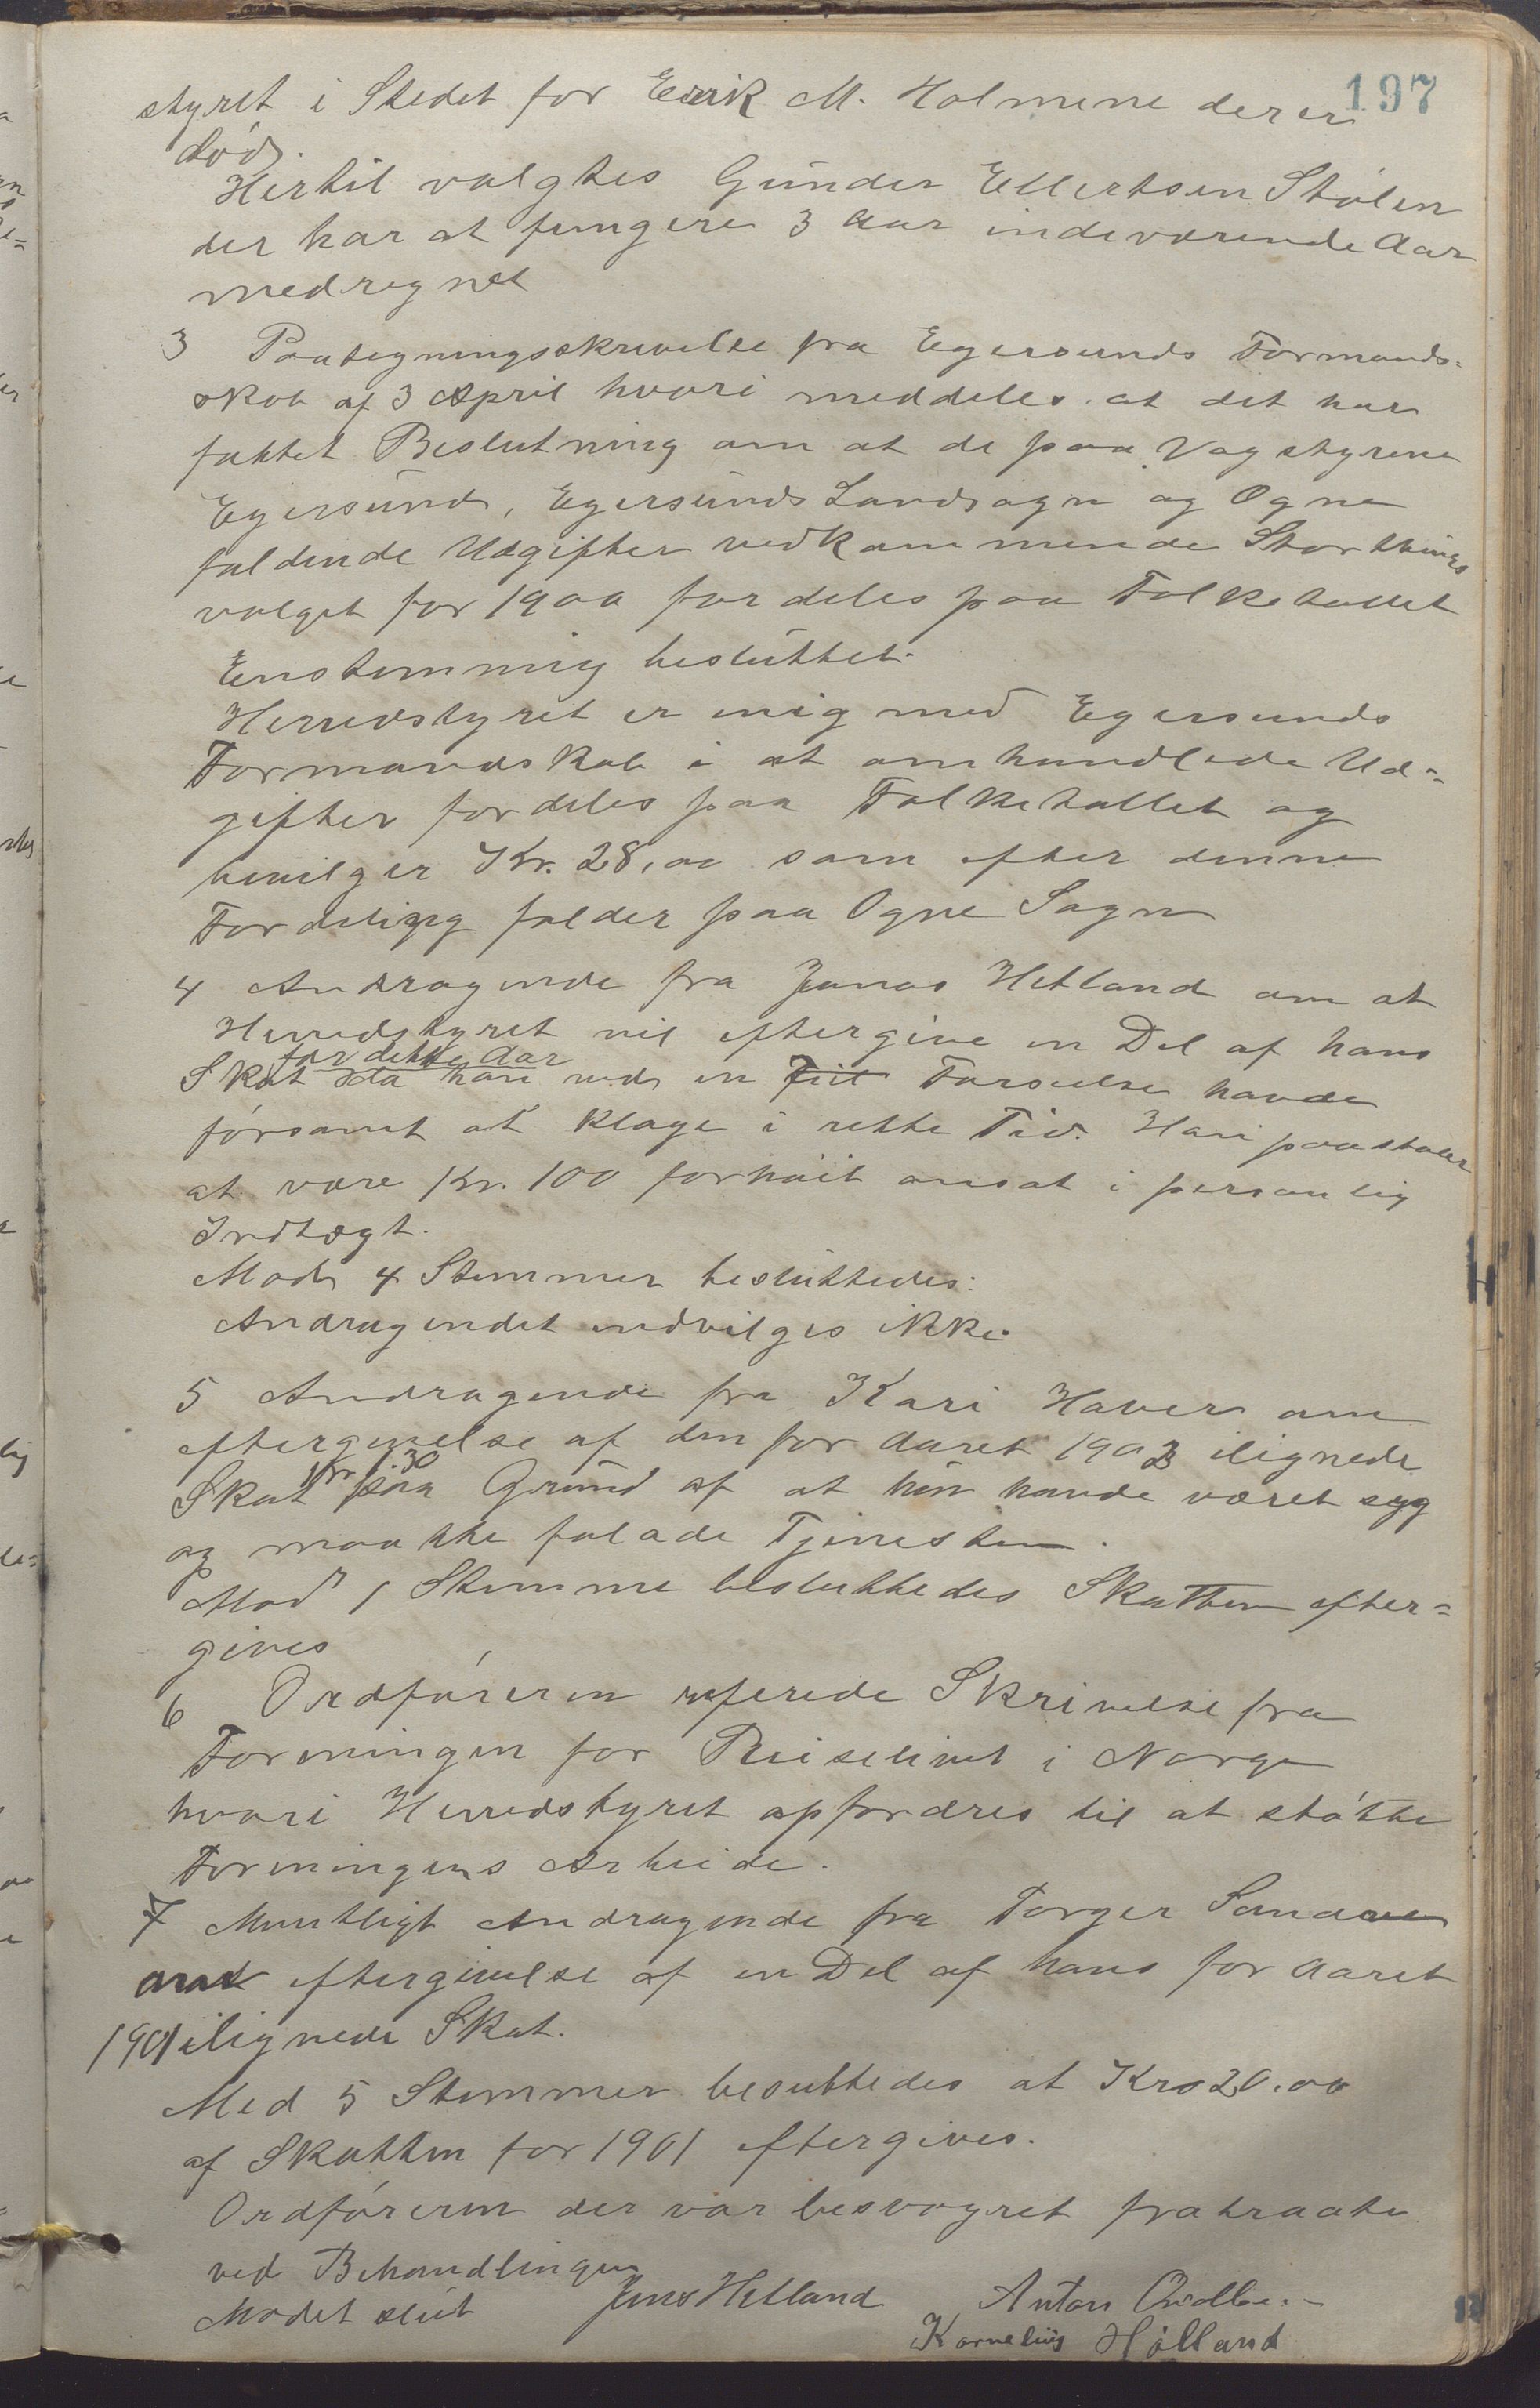 197
styret i Stedet for Eerik M. Holmene der er
død.
Hertil valgtes Gunder Ellertsen Stølen
der har at fungere 3 Aar indeværende Aar
medregnet
3 Paategningsskrivelse fra Egersunds Formands-
skab af 3 April hvori meddeles at det har
fattet Beslutning om at de paa Vagstyrene
Egersund, Egersunds Landsogn og Ogne
faldende Udgifter vedkommende Storthings
valget for 1900 fordeles paa Folketallet
Enstemmig besluttet.
Herredstyret er enig med Egersunds
Formandskab i at omhandlede Ud-
gifter fordeles paa Folketallet og
bevilger Kr. 28,00 som efter denne
Fordeling falder paa Ogne Sogn
4 Andragende fra Jonas Hetland om at
Herredstyret vil eftergive en Del af hans
for dette Aar
Skat da han ved en Feil Forseelse havde
forsømt at klage i rette Tid. Han paastaar
at være Kr. 100 forhøit ansat i personlig
Indtægt.
Mod 4 Stemmer besluttedes:
Andragendet indvilges ikke.
5 Andragende fra Kari Haver om
eftergivelse af den for Aaret 1902 ilignede
Kr 1.30
Skat paa Grund af at hun havde været syg
og maatte forlade Tjenesten.
Mod 1 Stemme besluttedes Skatten efter-
gives
6 Ordføreren referede Skrivelse fra
Foreningen for Reiselivet i Norge
hvori Herredstyret opfordres til at støtte
Foreningens Arbeide.
7 Muntligt Andragende fra Torger
om eftergivelse af en Del af hans for Aaret
1901 ilignede Skat.
Med 5 Stemmer besluttedes at Kr 20.00
af Skatten for 1901 eftergives.
Ordføreren der var besvogret fratraadte
ved Behandlingen
Mødet slut Jens Hetland Anton
Kornelius Hålland